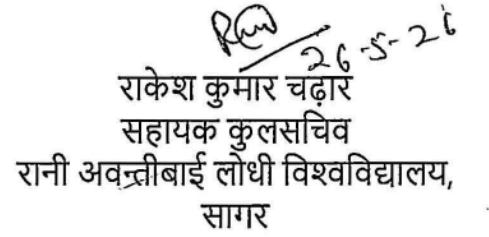 26-5-26
राकेश कुमार चढ़ार
सहायक कुलसचिव
रानी अवन्तीबाई लोधी विश्वविद्यालय,
सागर